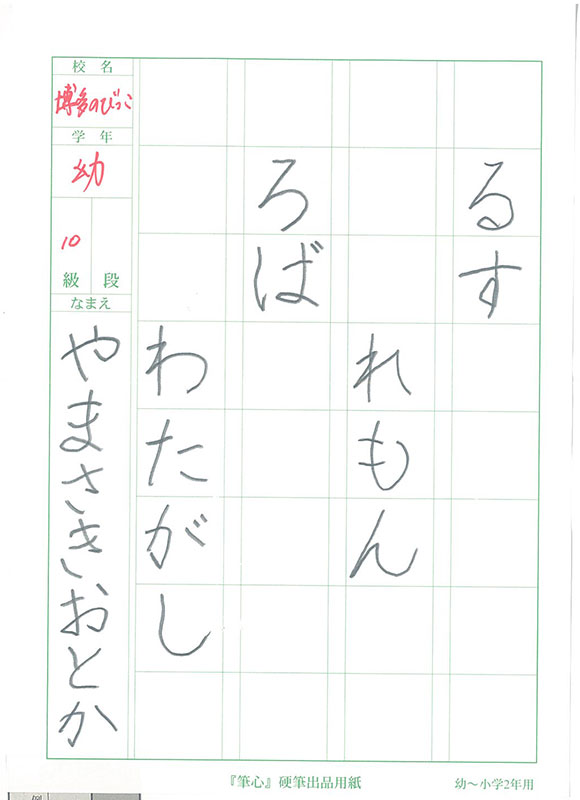 るす
れもん
ろば
わたがし
校名
博多のびっこ
学年
幼
10
級 段
なまえ
やまさきおとか
『筆心』硬筆出品用紙
幼〜小学2年用